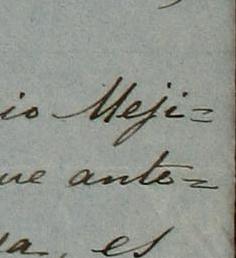 io Meji=
ue anto=
ya, es